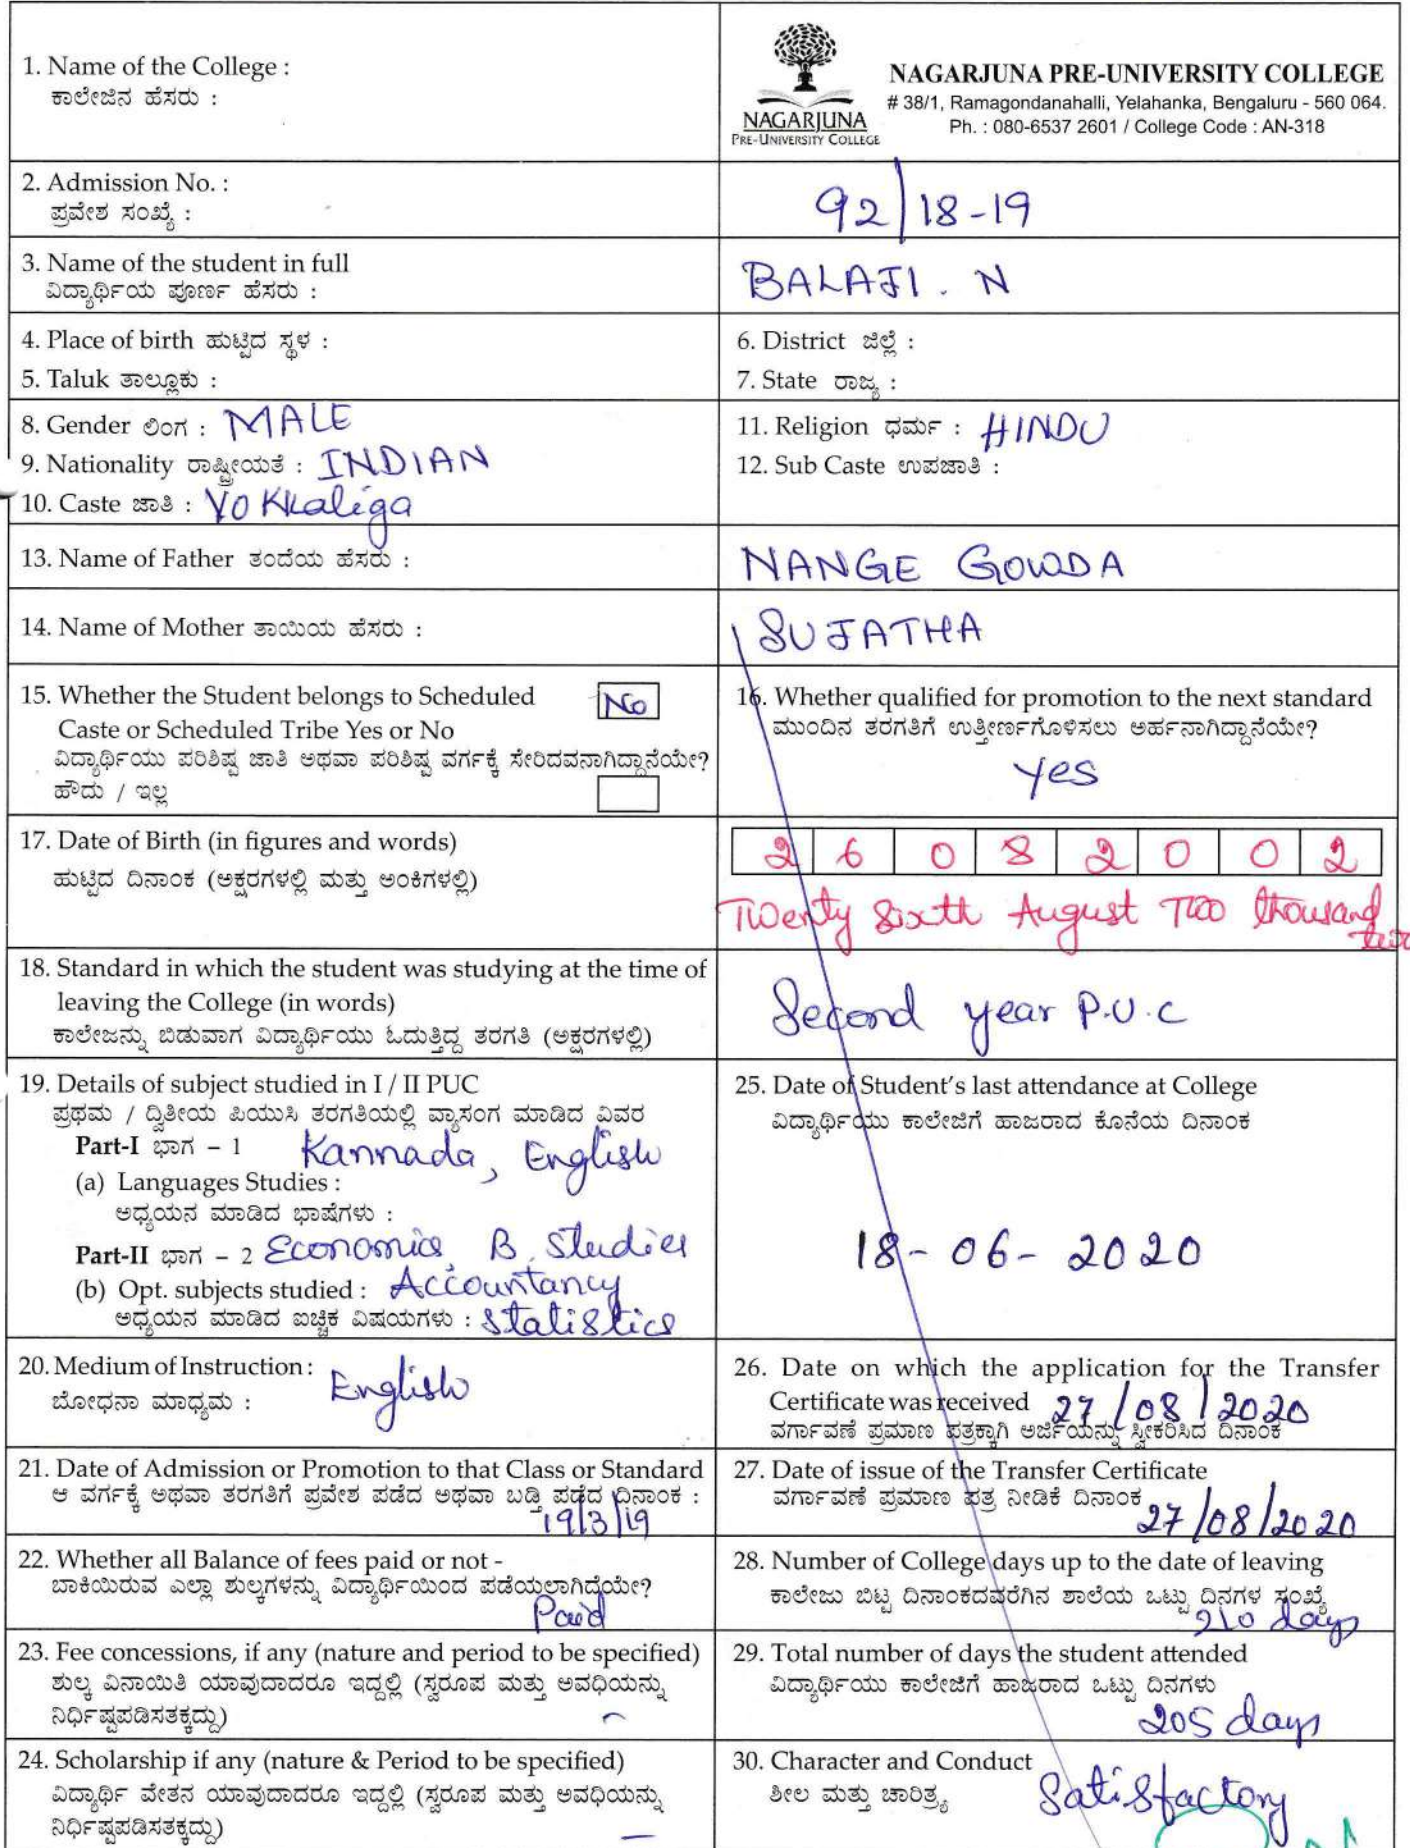 1. Name of the College :
ಕಾಲೇಜಿನ ಹೆಸರು :
NAGARJUNA
PRE-UNIVERSITY COLLEGE
NAGARJUNA PRE-UNIVERSITY COLLEGE
# 38/1, Ramagondanahalli, Yelahanka, Bengaluru - 560 064.
Ph. : 080-6537 2601 / College Code : AN-318
2. Admission No. :
ಪ್ರವೇಶ ಸಂಖ್ಯೆ :
92/18-19
3. Name of the student in full
ವಿದ್ಯಾರ್ಥಿಯ ಪೂರ್ಣ ಹೆಸರು :
BALAJI. N
4. Place of birth ಹುಟ್ಟಿದ ಸ್ಥಳ :
5. Taluk ತಾಲ್ಲೂಕು :
6. District ಜಿಲ್ಲೆ :
7. State ರಾಜ್ಯ :
8. Gender ಲಿಂಗ : MALE
9. Nationality ರಾಷ್ಟ್ರೀಯತೆ : INDIAN
10. Caste ಜಾತಿ : VOKkaliga
11. Religion ಧರ್ಮ : HINDU
12. Sub Caste ಉಪಜಾತಿ :
13. Name of Father ತಂದೆಯ ಹೆಸರು :
NANGE GOWDA
14. Name of Mother ತಾಯಿಯ ಹೆಸರು :
SUJATHA
15. Whether the Student belongs to Scheduled
Caste or Scheduled Tribe Yes or No
No
ವಿದ್ಯಾರ್ಥಿಯು ಪರಿಶಿಷ್ಟ ಜಾತಿ ಅಥವಾ ಪರಿಶಿಷ್ಟ ವರ್ಗಕ್ಕೆ ಸೇರಿದವನಾಗಿದ್ದಾನೆಯೇ?
ಹೌದು / ಇಲ್ಲ
16. Whether qualified for promotion to the next standard
ಮುಂದಿನ ತರಗತಿಗೆ ಉತ್ತೀರ್ಣಗೊಳಿಸಲು ಅರ್ಹನಾಗಿದ್ದಾನೆಯೇ?
yes
17. Date of Birth (in figures and words)
ಹುಟ್ಟಿದ ದಿನಾಂಕ (ಅಕ್ಷರಗಳಲ್ಲಿ ಮತ್ತು ಅಂಕಿಗಳಲ್ಲಿ)
2 6 0 8 2 0 0 2
Twenty Sixth August Two thousand
two
18. Standard in which the student was studying at the time of
leaving the College (in words)
ಕಾಲೇಜನ್ನು ಬಿಡುವಾಗ ವಿದ್ಯಾರ್ಥಿಯು ಓದುತ್ತಿದ್ದ ತರಗತಿ (ಅಕ್ಷರಗಳಲ್ಲಿ)
Second year P.U.C
19. Details of subject studied in I / II PUC
ಪ್ರಥಮ / ದ್ವಿತೀಯ ಪಿಯುಸಿ ತರಗತಿಯಲ್ಲಿ ವ್ಯಾಸಂಗ ಮಾಡಿದ ವಿವರ
Part-I ಭಾಗ – 1 Kannada, English
(a) Languages Studies :
ಅಧ್ಯಯನ ಮಾಡಿದ ಭಾಷೆಗಳು :
Part-II ಭಾಗ – 2 Economics, B. Studies
(b) Opt. subjects studied : Accountancy
ಅಧ್ಯಯನ ಮಾಡಿದ ಐಚ್ಛಿಕ ವಿಷಯಗಳು : Statistics
25. Date of Student's last attendance at College
ವಿದ್ಯಾರ್ಥಿಯು ಕಾಲೇಜಿಗೆ ಹಾಜರಾದ ಕೊನೆಯ ದಿನಾಂಕ
18-06-2020
20. Medium of Instruction : English
ಬೋಧನಾ ಮಾಧ್ಯಮ :
26. Date on which the application for the Transfer
Certificate was received 27/08/2020
ವರ್ಗಾವಣೆ ಪ್ರಮಾಣ ಪತ್ರಕ್ಕಾಗಿ ಅರ್ಜಿಯನ್ನು ಸ್ವೀಕರಿಸಿದ ದಿನಾಂಕ
21. Date of Admission or Promotion to that Class or Standard
ಆ ವರ್ಗಕ್ಕೆ ಅಥವಾ ತರಗತಿಗೆ ಪ್ರವೇಶ ಪಡೆದ ಅಥವಾ ಬಡ್ತಿ ಪಡೆದ ದಿನಾಂಕ :
19/3/19
27. Date of issue of the Transfer Certificate
ವರ್ಗಾವಣೆ ಪ್ರಮಾಣ ಪತ್ರ ನೀಡಿಕೆ ದಿನಾಂಕ
27/08/2020
22. Whether all Balance of fees paid or not -
ಬಾಕಿಯಿರುವ ಎಲ್ಲಾ ಶುಲ್ಕಗಳನ್ನು ವಿದ್ಯಾರ್ಥಿಯಿಂದ ಪಡೆಯಲಾಗಿದೆಯೇ?
Paid
28. Number of College days up to the date of leaving
ಕಾಲೇಜು ಬಿಟ್ಟ ದಿನಾಂಕದವರೆಗಿನ ಶಾಲೆಯ ಒಟ್ಟು ದಿನಗಳ ಸಂಖ್ಯೆ
210 days
23. Fee concessions, if any (nature and period to be specified)
ಶುಲ್ಕ ವಿನಾಯಿತಿ ಯಾವುದಾದರೂ ಇದ್ದಲ್ಲಿ (ಸ್ವರೂಪ ಮತ್ತು ಅವಧಿಯನ್ನು
ನಿರ್ಧಿಷ್ಟಪಡಿಸತಕ್ಕದ್ದು) –
29. Total number of days the student attended
ವಿದ್ಯಾರ್ಥಿಯು ಕಾಲೇಜಿಗೆ ಹಾಜರಾದ ಒಟ್ಟು ದಿನಗಳು
205 days
24. Scholarship if any (nature & Period to be specified)
ವಿದ್ಯಾರ್ಥಿ ವೇತನ ಯಾವುದಾದರೂ ಇದ್ದಲ್ಲಿ (ಸ್ವರೂಪ ಮತ್ತು ಅವಧಿಯನ್ನು
ನಿರ್ಧಿಷ್ಟಪಡಿಸತಕ್ಕದ್ದು) –
30. Character and Conduct
ಶೀಲ ಮತ್ತು ಚಾರಿತ್ರ್ಯ Satisfactory